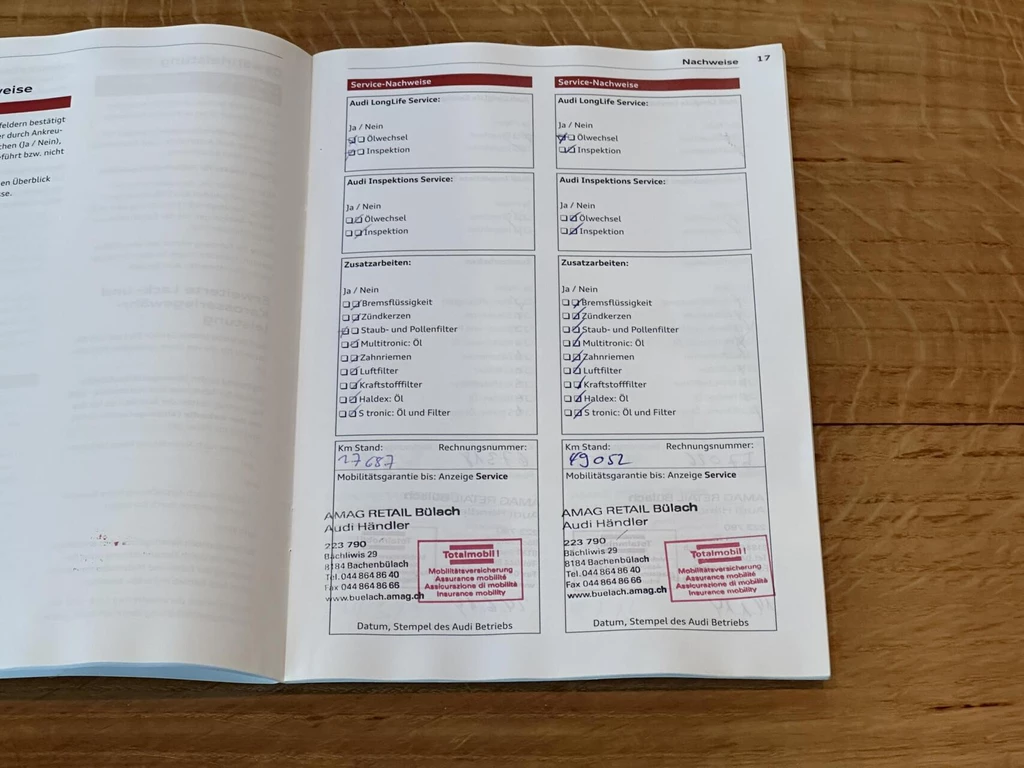 eise
feldern bestätigt
er durch Ankreu-
chen (Ja / Nein),
eführt bzw. nicht
en Überblick
sse.
Nachweise 17
Service-Nachweise
Audi LongLife Service:
Ja / Nein
Ölwechsel
Inspektion
Audi Inspektions Service:
Ja / Nein
Ölwechsel
Inspektion
Zusatzarbeiten:
Ja / Nein
Bremsflüssigkeit
Zündkerzen
Staub- und Pollenfilter
Multitronic: Öl
Zahnriemen
Luftfilter
Kraftstofffilter
Haldex: Öl
S tronic: Öl und Filter
Km Stand: Rechnungsnummer:
27687
Mobilitätsgarantie bis: Anzeige Service
AMAG RETAIL Bülach
Audi Händler
223 790
Bächliwis 29
8184 Bachenbülach
Tel. 044 864 86 40
Fax 044 864 86 66
www.buelach.amag.ch
Totalmobil!
Mobilitätsversicherung
Assurance mobilité
Assicurazione di mobilità
Insurance mobility
Datum, Stempel des Audi Betriebs
Service-Nachweise
Audi LongLife Service:
Ja / Nein
Ölwechsel
Inspektion
Audi Inspektions Service:
Ja / Nein
Ölwechsel
Inspektion
Zusatzarbeiten:
Ja / Nein
Bremsflüssigkeit
Zündkerzen
Staub- und Pollenfilter
Multitronic: Öl
Zahnriemen
Luftfilter
Kraftstofffilter
Haldex: Öl
S tronic: Öl und Filter
Km Stand: Rechnungsnummer:
49052
Mobilitätsgarantie bis: Anzeige Service
AMAG RETAIL Bülach
Audi Händler
223 790
Bächliwis 29
8184 Bachenbülach
Tel. 044 864 86 40
Fax 044 864 86 66
www.buelach.amag.ch
Totalmobil!
Mobilitätsversicherung
Assurance mobilité
Assicurazione di mobilità
Insurance mobility
Datum, Stempel des Audi Betriebs